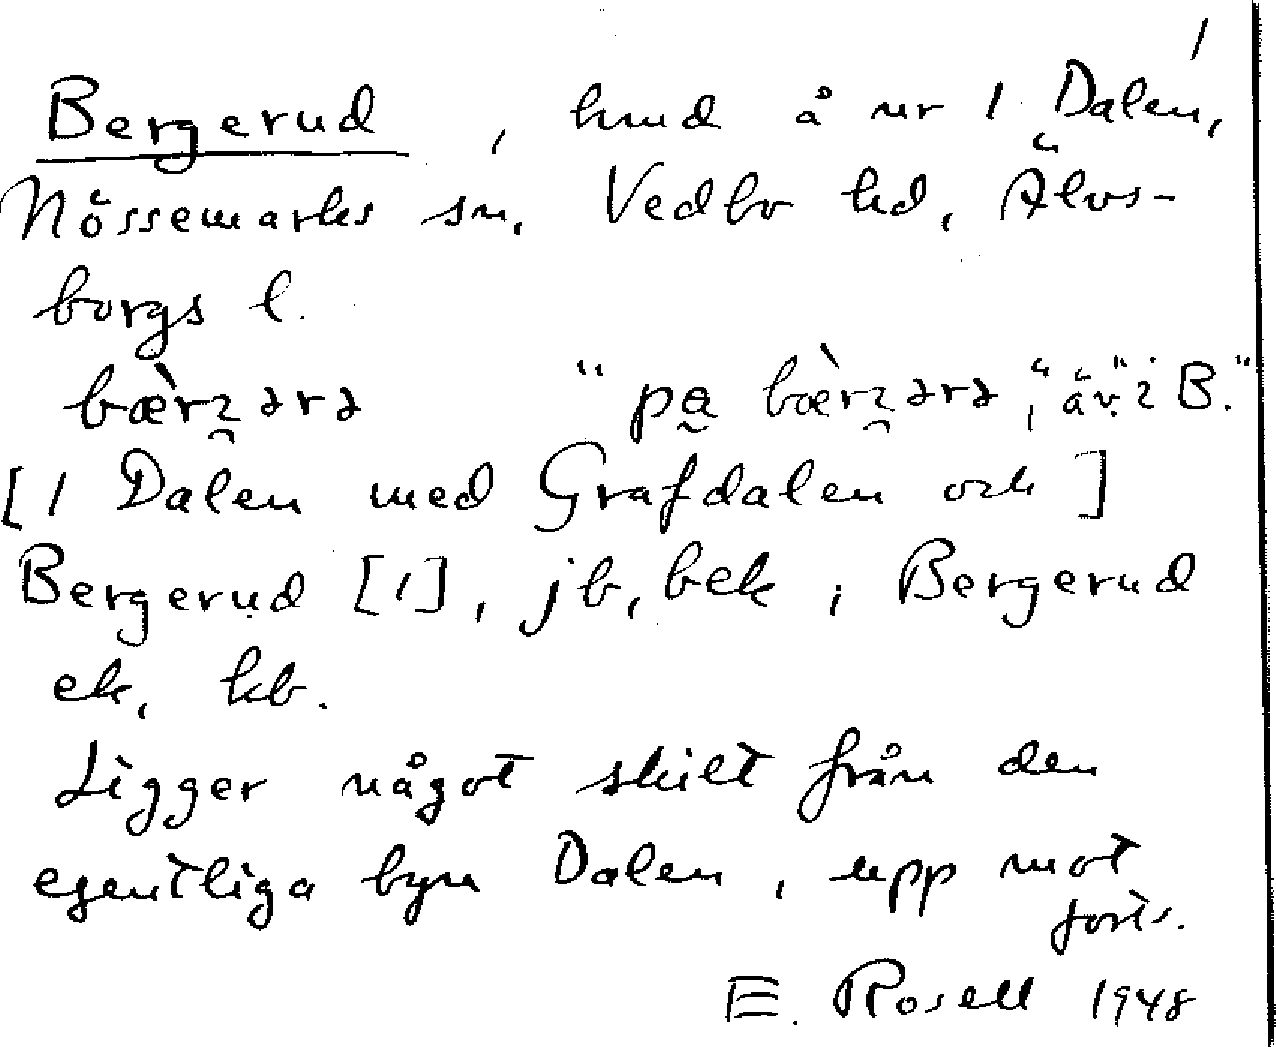 1
Bergerud, hmd å nr 1 Dalen,
Nössemarks sn, Vedbo hd, Älvs-
borgs l.
bæ̀rʒərə "pa bæ̀rʒərə", "äv." i B."
[1 Dalen med Grafdalen och]
Bergerud [1], jb, bek; Bergerud
ek, kb.
Ligger något skilt från den
egentliga byn Dalen, upp mot
forts.
E. Rosell 1948